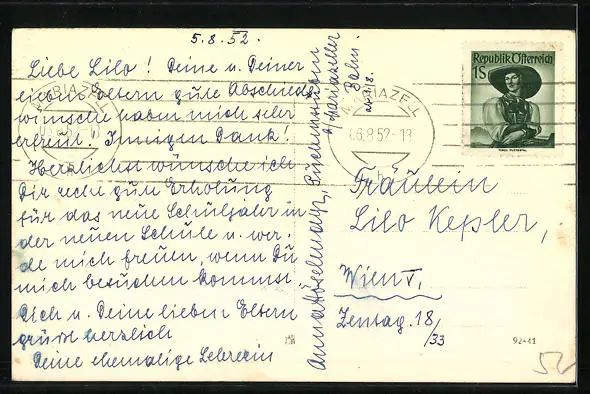 5.8.52.
Liebe Lilo! Deine u. Deiner
lieben Eltern gute Abschieds
wünsche haben mich sehr
erfreut! Innigen Dank!
Herzlichst wünsche ich
Dir recht gute Erholung
für das neue Schuljahr in
der neuen Schule u. wer.
de mich freuen, wenn Du
mich besuchen kommst.
Dich u. Deine lieben Eltern
grüßt herzlich
Deine ehemalige Lehrerin
a/Mariazeller
Bahn.
MARIAZELL
MARIAZELL
-6.8.52-18
Republik Österreich
1S
Fräulein
Lilo Kepler,
Wien V,
Zentag. 18/33
92441
52